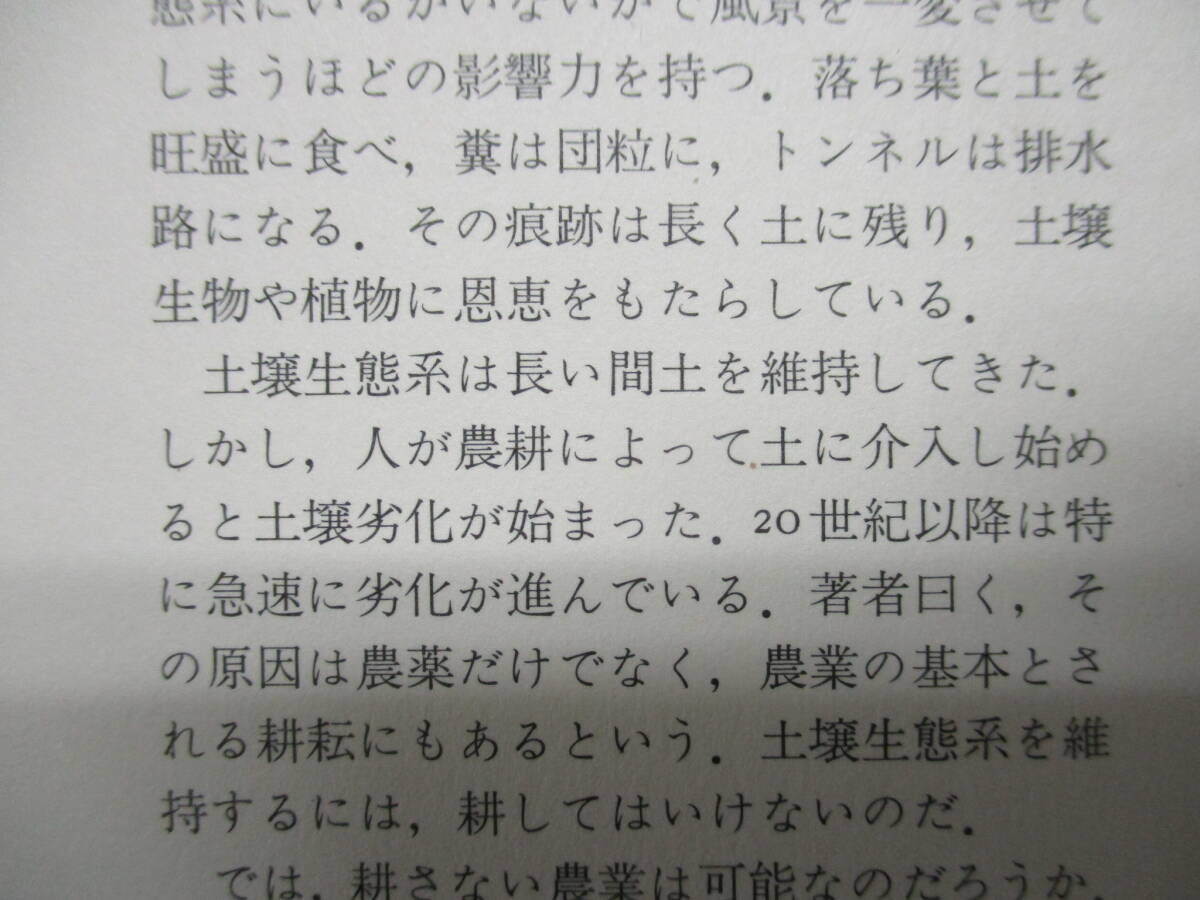 態系にいるかいないかで風景を一変させて
しまうほどの影響力を持つ．落ち葉と土を
旺盛に食べ，糞は団粒に，トンネルは排水
路になる．その痕跡は長く土に残り，土壌
生物や植物に恩恵をもたらしている．
土壌生態系は長い間土を維持してきた．
しかし，人が農耕によって土に介入し始め
ると土壌劣化が始まった．20世紀以降は特
に急速に劣化が進んでいる．著者曰く，そ
の原因は農薬だけでなく，農業の基本とさ
れる耕耘にもあるという．土壌生態系を維
持するには，耕してはいけないのだ．
では，耕さない農業は可能なのだろうか．